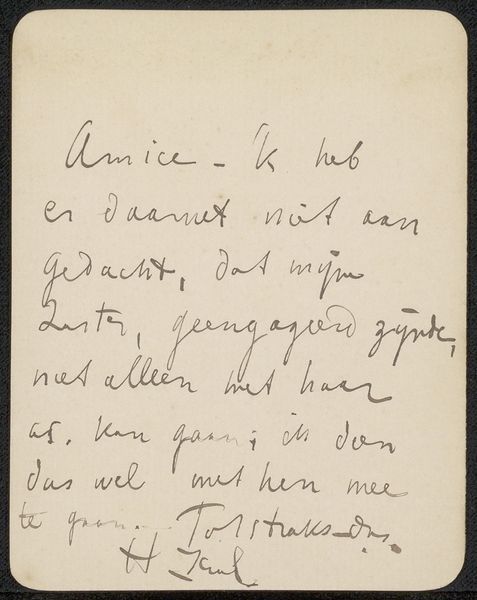 Amice – 'k heb
er daarnet niet aan
gedacht, dat mijn
Zuster, geengageerd zijnde,
niet alleen met haar
as. kan gaan; ik dien
dus wel met hen mee
te gaan. Tot straks dus.
H